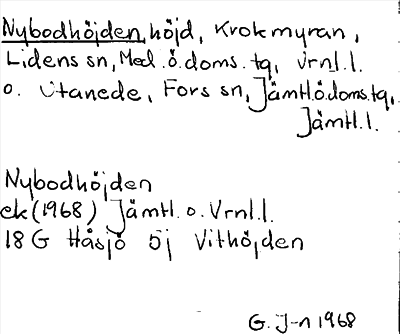 Nybodhöjden, höjd, Krokmyran,
Lidens sn, Med. ö. doms. tg, Vrnl.l.
o. Utanede, Fors sn, Jämtl.ö.doms.tg,
Jämtl.l.
Nybodhöjden
ek (1968) Jämtl. o. Vrnl.l.
18 G Håsjö 5j Vithöjden
G. J-n 1968